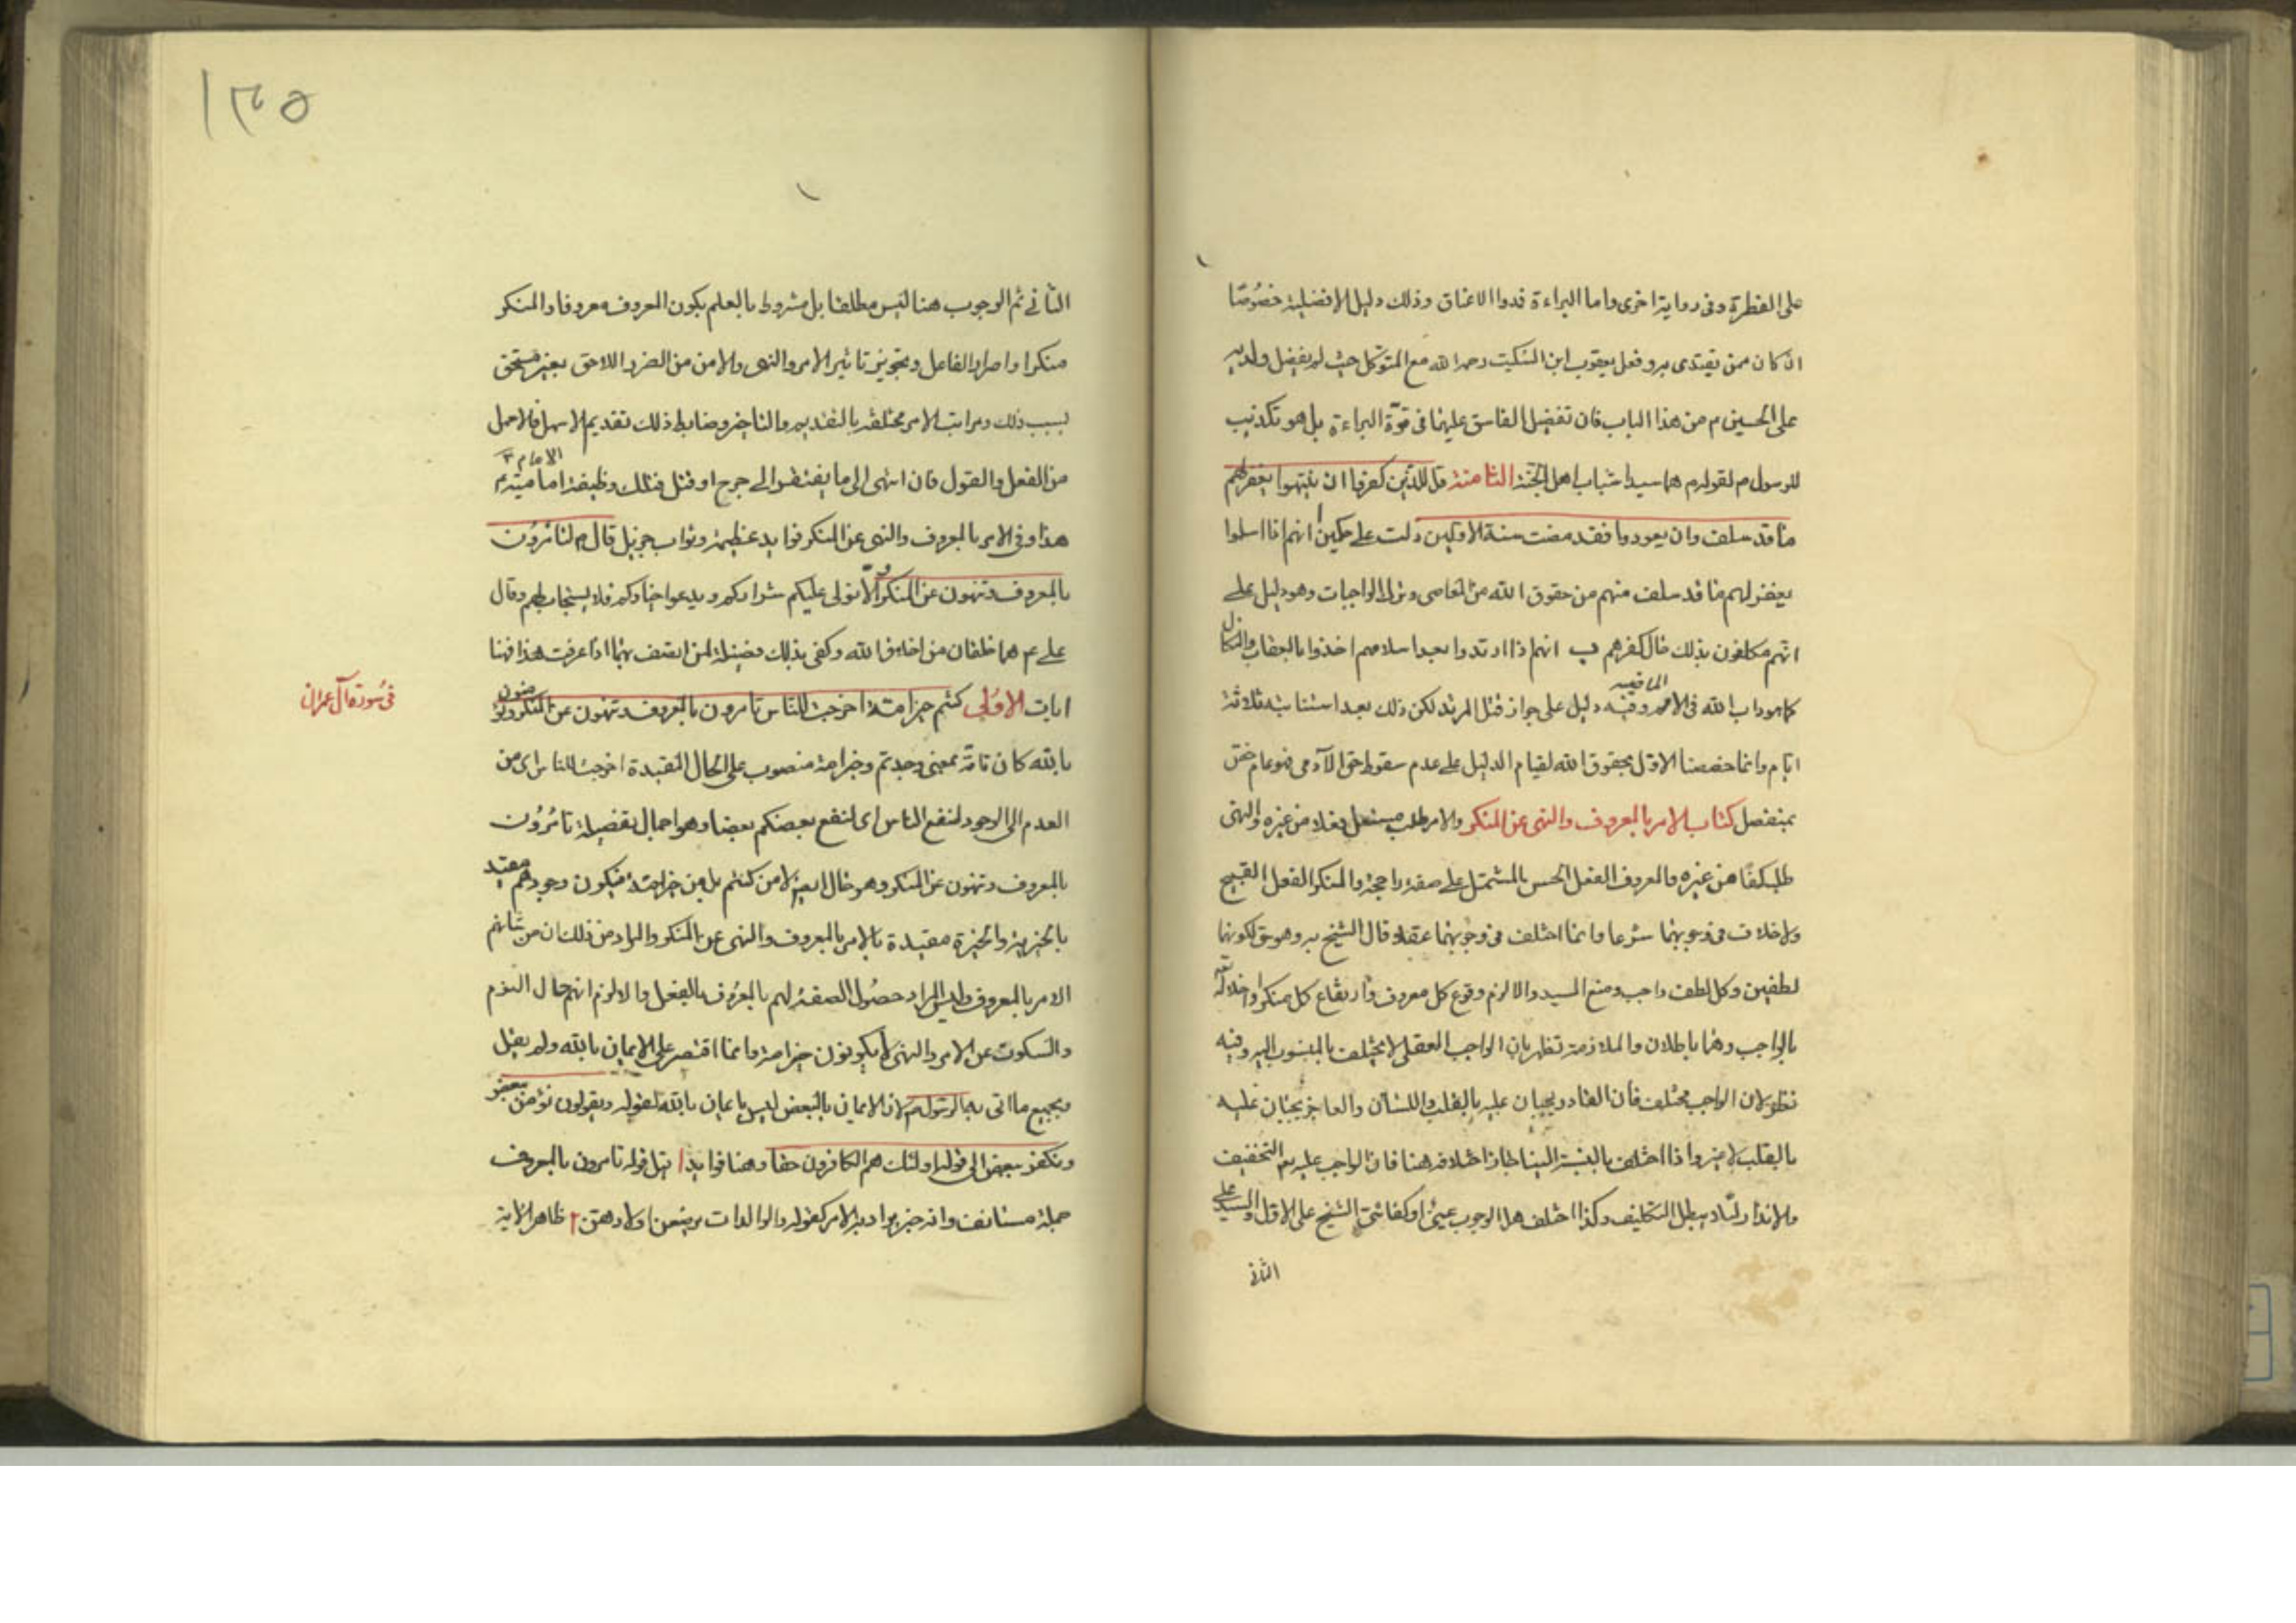 على الفطرة وفى رواية اخرى واما البراءة فدوا الاعناق وذلك دليل الافضلية خصُوصًا
ان كان ممن يقتدى به وفعل يعقوب ابن السّكيت رحمه الله مع المتوكل حيث لم يفضل ولديه
على الحسين م من هذا الباب فان تفضيل الفاسق عليهما فى قوّة البراءة بل هو تكذيب
للرسول م لقوله م هما سيدا شباب اهل الجنّة الثامنة قل للذين كفروا ان ينتهوا يغفر لهم
ما قد سلف وان يعودوا فقد مضت سنة الاولين دلت على حكمين ا انهم اذا اسلموا
يغفر لهم ما قد سلف منهم من حقوق الله من المعاصى وترك الواجبات وهو دليل على
انهم مكلفون بذلك حال كفرهم ب انهم اذا ارتدوا بعد اسلامهم اخذوا بالعقاب والنكال
كما هو داب الله فى الامم الماضيه وفيه دليل على جواز قتل المرتد لكن ذلك بعد استتابته ثلاثة
ايام وانما خصصنا الاول بحقوق الله لقيام الدليل على عدم سقوط حق الآدمى فهو عام خصّ
بمنفصل كتاب الامر بالمعروف والنهى عن المنكر والامر طلب مستعل فعلا من غيره والنهى
طلبه كفّا من غيره والمعروف الفعل الحسن المشتمل على صفة راجحة والمنكر الفعل القبيح
ولا خلاف فى وجوبهما شرعا وانما اختلف فى وجوبهما عقلا وقال الشيخ به وهو حق لكونهما
لطفين وكل لطف واجب ومنع السيد والا لزم وقوع كل معروف وارتفاع كل منكر او اخلاله تعه
بالواجب وهما باطلان والملازمة تظهر بان الواجب العقلى لا يختلف بالمنسوب اليه وفيه
نظر لان الواجب مختلف فان القادر يجبان عليه بالقلب واللسان والعاجز يجبان عليه
بالقلب لا غير واذا اختلف بالنسبة الينا جاز اختلافه هنا فان الواجب عليه تع التخفيف
والانذار لئلا يبطل التكليف وكذا اختلف هل الوجوب عينىّ او كفائىّ الشيخ على الاول والسيد على
الثانى
١٣٥
الثانى ثم الوجوب هنا ليس مطلقا بل مشروط بالعلم بكون المعروف معروفا والمنكر
منكرا واصرار الفاعل وتجويز تاثير الامر والنهى والامن من الضرر اللاحق بغير مستحق
بسبب ذلك ومراتب الامر مختلفة بالتقديم والتاخير وضابط ذلك تقديم الاسهل فالاسهل
من الفعل والقول فان انتهى الى ما يفتقر الى جرح او قتل فتلك وظيفة امامية الامام م
هذا وفى الامر بالمعروف والنهى عن المنكر فوايد عظيمة وثواب جزيل قال م لتامرُون
بالمعروف وتنهون عن المنكر والّا تولى عليكم شراركم ويدعوا خياركم فلا يستجاب لهم وقال
على ع هما خلقان من اخلاق الله وكفى بذلك فضيلة لمن اتصف بهما اذا عرفت هذا فهنا
ايات الاوُلى كنتم خير امة اخرجت للناس تامرون بالمعروف وتنهون عن المنكر وتؤمنون
فى سُورة آل عمران
بالله كان تامّة بمعنى وجدتم وخير امة منصوب على الحال المقيدة اخرجت للناس اى من
العدم الى الوجود لنفع الناس اى لنفع بعضكم بعضا وهو اجمال تفصيله تامرُوُن
بالمعروف وتنهون عن المنكر وهو حال ايضا لا من كنتم بل من خير امة فيكون وجودهم مقيد
بالخيرية والخيرة مقيدة بالامر بالمعروف والنهى عن المنكر والمراد من ذلك ان من شانهم
الامر بالمعروف وليس المراد حصُول الصفة لهم بالمعرُوف بالفعل والا لزم انهم حال النوم
والسكوت عن الامر والنهى لا يكونون خير امة وانما اقتصر على الايمان بالله ولم يقل
وبجميع ما اتى به الرسول م لان الايمان بالبعض ليس بايمان بالله لقوله ويقولون نؤمن ببعض
ونكفر ببعض الى قوله اولئك هم الكافرون حقا وهنا فوايد ا قيل قوله تامرون بالمعروف
جملة مستانفة وانه خبر يراد به الامر كقوله والوالدات يرضعن اولادهن ٢ ظاهر الاية